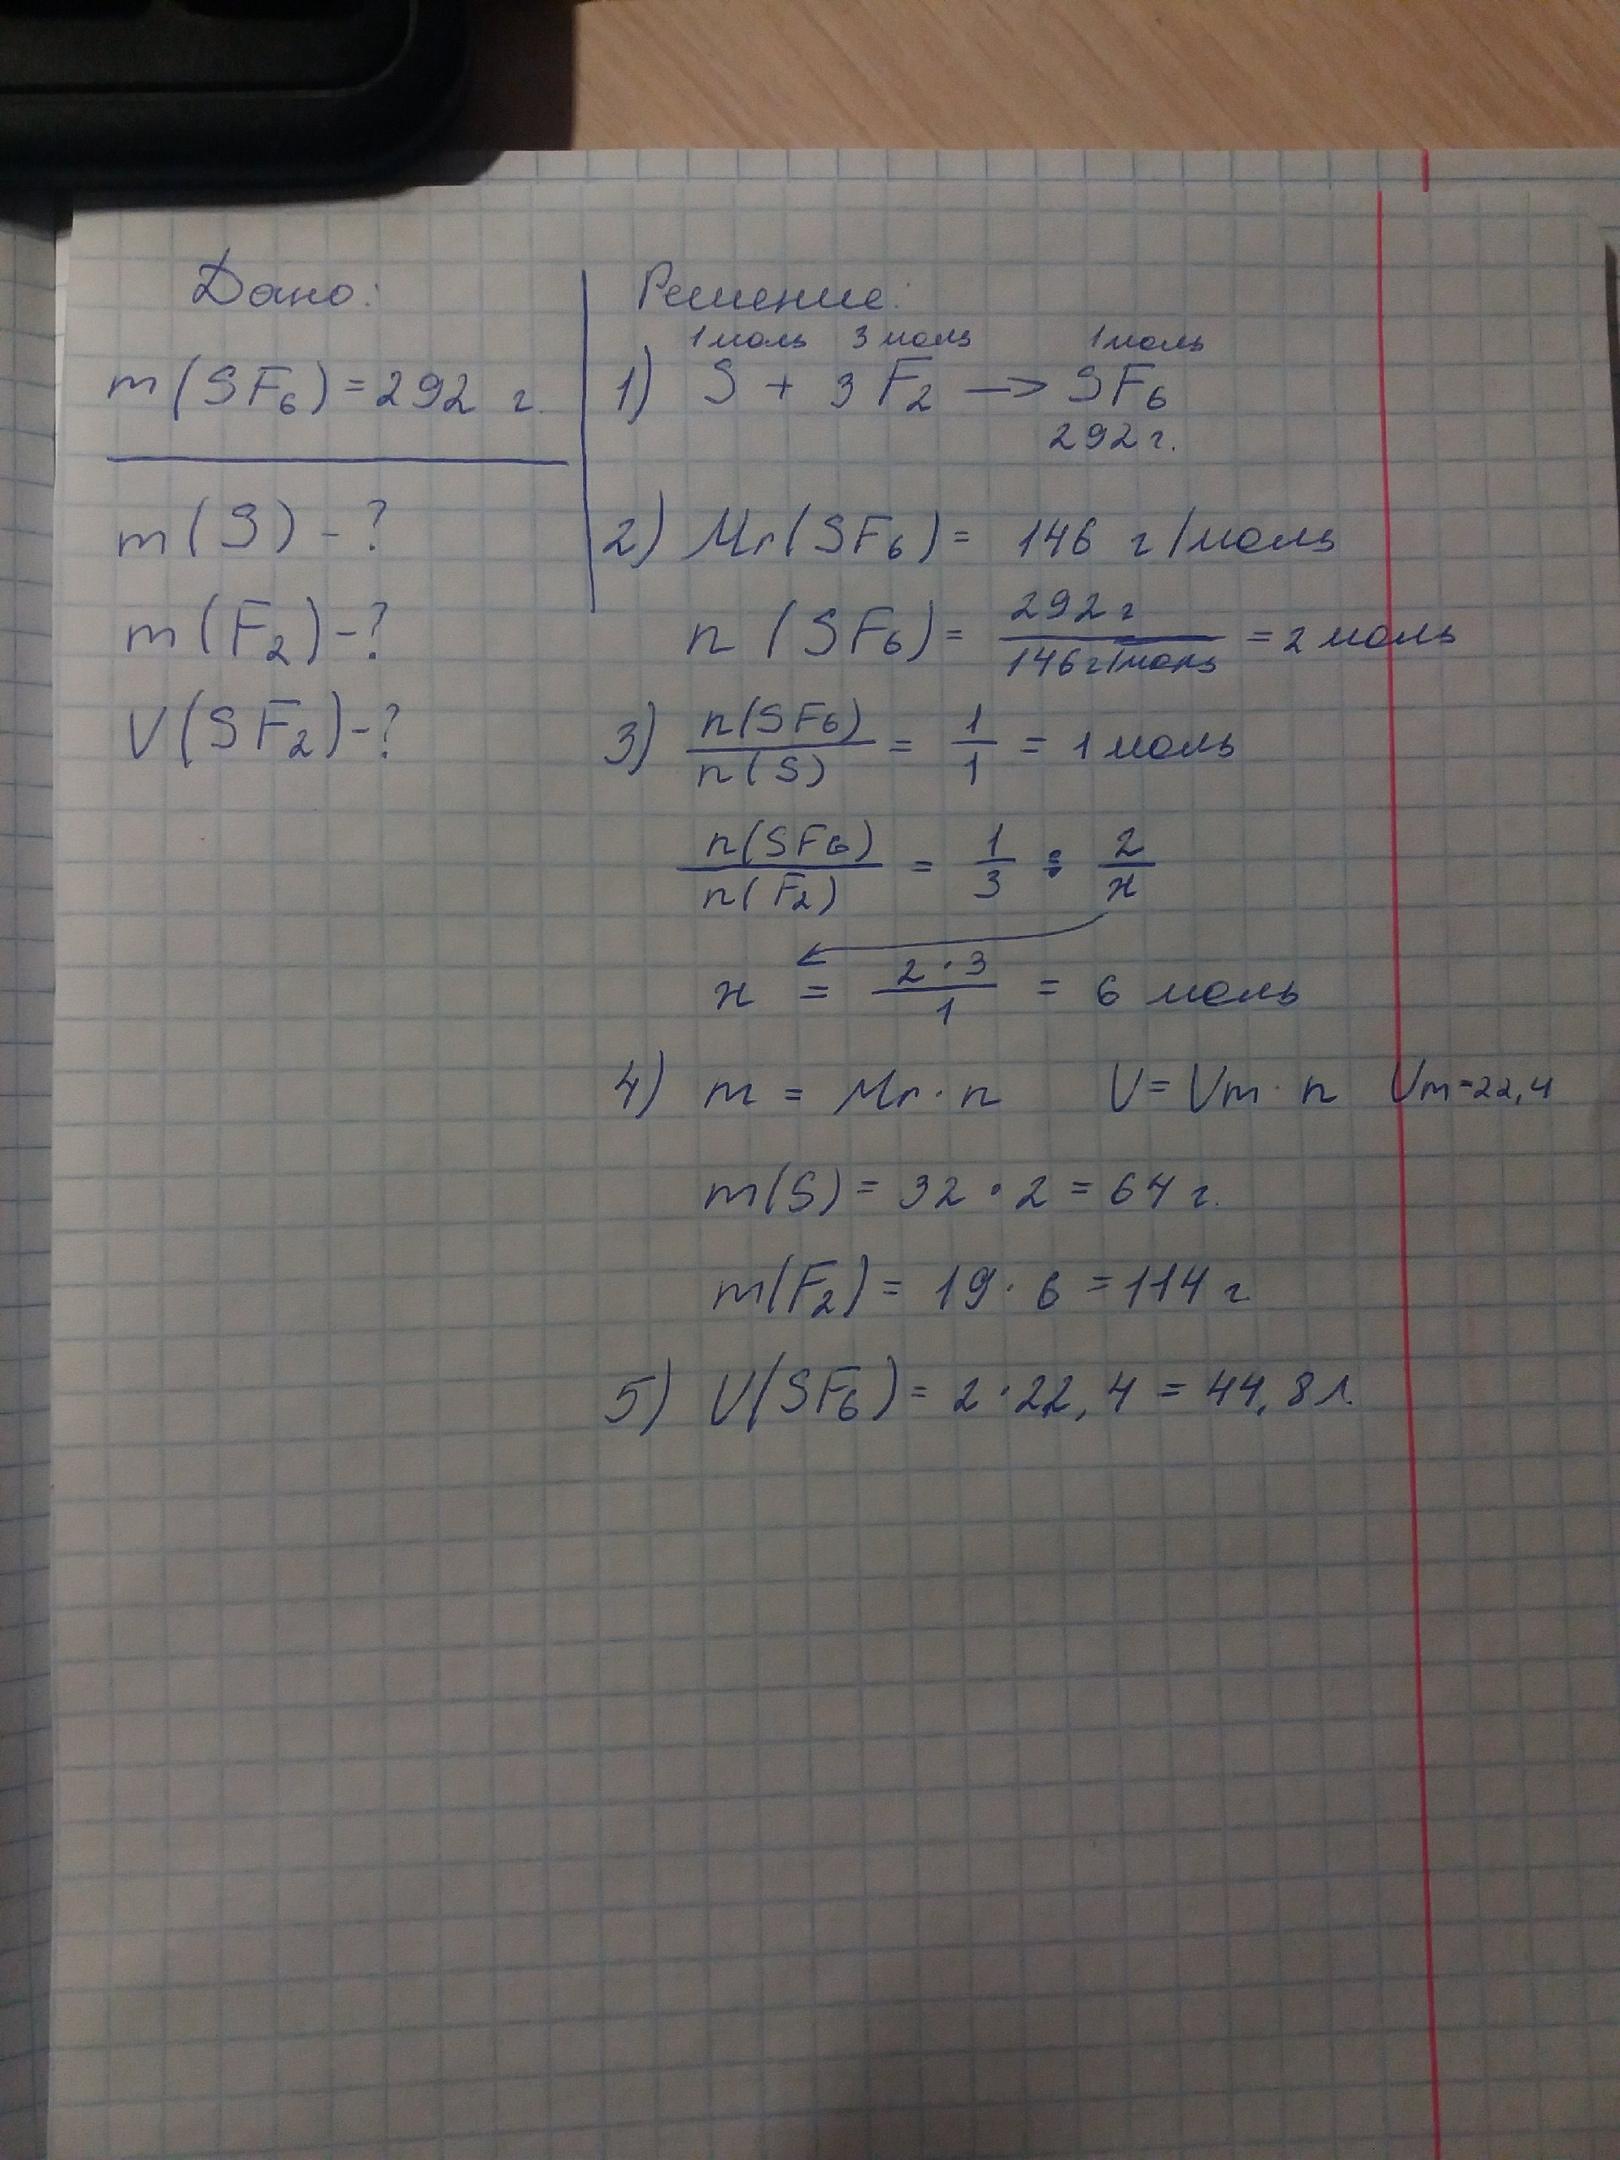 Дано:
m(SF₆)=292 г.
m(S)-?
m(F₂)-?
V(SF₂)-?
Решение:
1моль 3 моль 1моль
1) S + 3F₂ → SF₆
292г.
2) Mr(SF₆)= 146 г/моль
n(SF₆)= 292г / 146г/моль = 2 моль
3) n(SF₆)/n(S) = 1/1 = 1 моль
n(SF₆)/n(F₂) = 1/3 = 2/x
x = 2·3/1 = 6 моль
4) m = Mr·n V=Vm·n Vm=22,4
m(S)= 32·2=64 г.
m(F₂)= 19·6=114 г
5) V(SF₆)= 2·22,4=44,8 л.